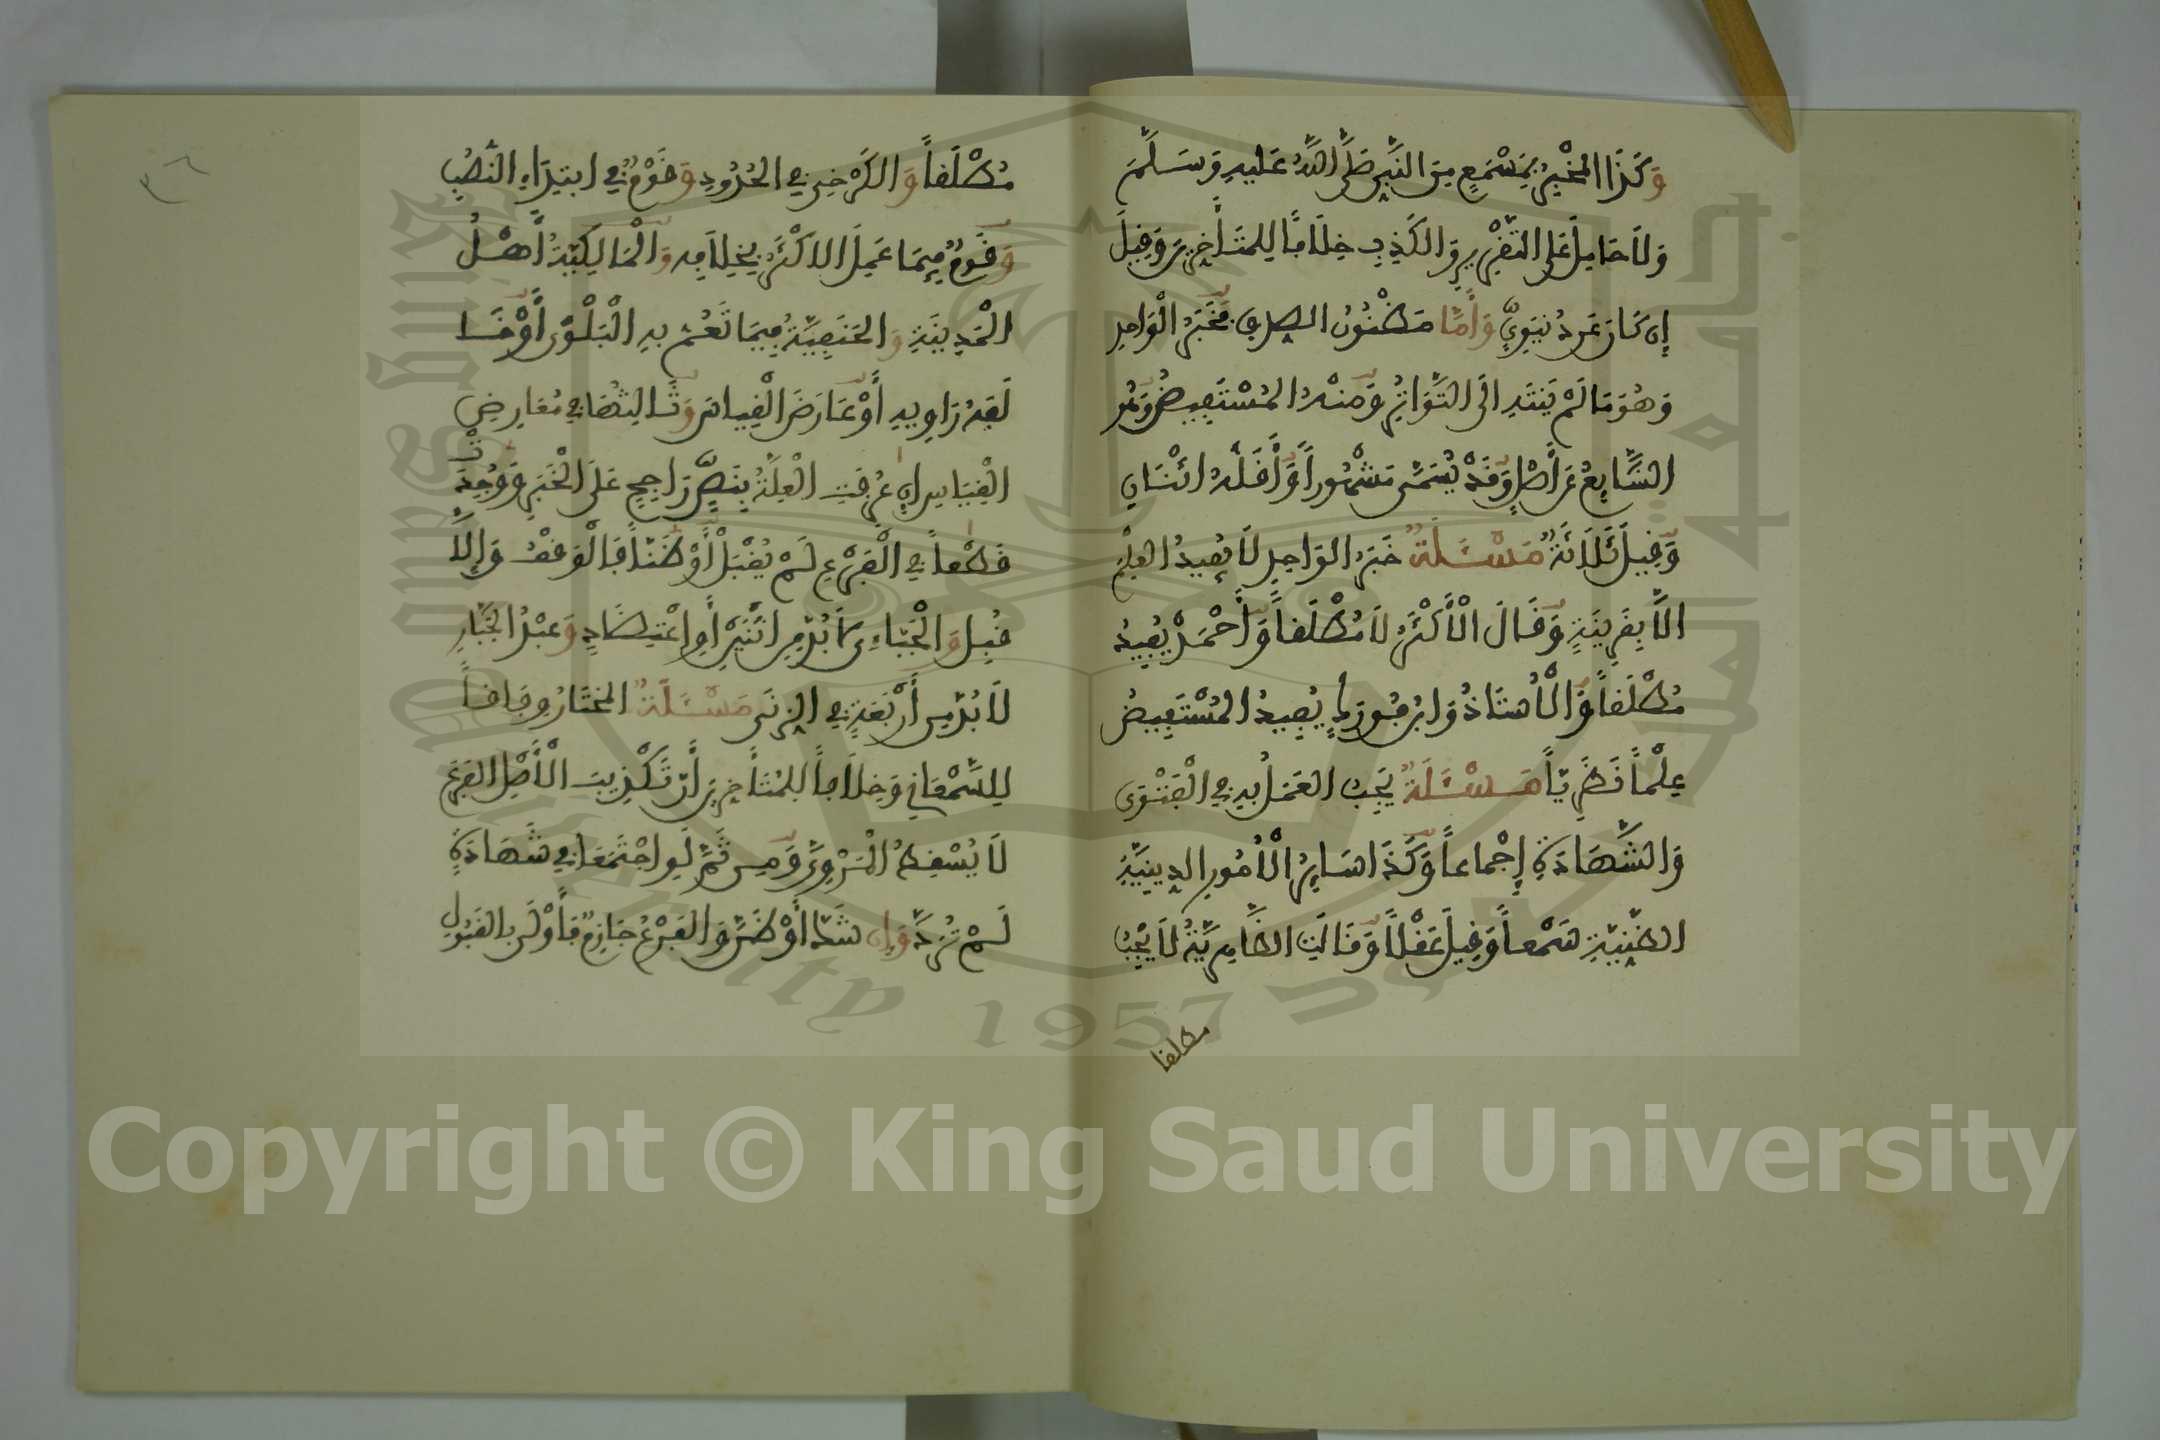 وَكَذَا المُخْبِرُ بِمَسْمَعٍ مِنَ النَّبِيِّ صَلَّى اللَّهُ عَلَيْهِ وَسَلَّمَ
وَلَا حَامِلَ عَلَى التَّقْرِيرِ وَالكَذِبِ خِلَافًا لِلمُتَأَخِّرِينَ وَقِيلَ
إِن كَانَ عَن دُنْيَوِيٍّ وَأَمَّا مَظْنُونُ الصِّدْقِ فَخَبَرُ الْوَاحِدِ
وَهُوَ مَا لَمْ يَنْتَهِ الَى التَّوَاتُرِ وَمِنْهُ المُسْتَفِيضُ وَهُوَ
الشَّايِعُ عَنْ أَصْلٍ وَقَدْ يُسَمَّى مَشْهُوراً وَأَقَلُّهُ اثْنَانِ
وَقِيلَ ثَلَاثَةٌ مَسْئَلَةٌ خَبَرُ الوَاحِدِ لَا يُفِيدُ العِلْمَ
الَّا بِقَرِينَةٍ وَقَالَ الْأَكْثَرُ لَا مُطْلَقاً وَأَحْمَدُ يُفِيدُ
مُطْلَقاً وَالْأُسْتَاذُ وَابْنُ فُورَكٍ يُفِيدُ المُسْتَفِيضُ
عِلْماً نَظَرِيّاً مَسْئَلَةٌ يَجِبُ العَمَلُ بِهِ فِي الْفَتْوَى
وَالشَّهَادَةِ إِجْماعاً وَكَذَا سَايِرُ الْأُمُورِ الدِينِيَّةِ
الظَّنِّيَّةِ سَمْعاً وَقِيلَ عَقْلًا وَقَالَتِ الظَّاهِرِيَّةُ لَا يَجِبُ
مطلقا
مُطْلَقاً وَالكَرْخِي فِي الحُدُودِ وَقَوْمٌ فِي ابْتِدَاءِ النُّصُبِ
وَقَوْمٌ فِيمَا عَمِلَ الاكْثَرُ بِخِلَافِهِ وَالْمَالِكِيَّةُ أَهْلُ
الْمَدِينَةِ وَالحَنَفِيَّةُ فِيمَا تَعُمُّ بِهِ الْبَلْوَى أَوْ خَا
لَفَهُ رَاوِيهِ أَوْ عَارَضَ الْقِيَاسَ وَثَالِثُهَا فِي مُعَارِضِ
الْقِيَاسِ إِن عُرِفَتِ الْعِلَّةُ بِنَصٍّ رَاجِحٍ عَلَى الْخَبَرِ وَوُجِدَتْ
قَطْعاً فِي الْفَرْعِ لَمْ يُقْبَلْ أَوْ ظَنّاً فَالْوَقْفُ وَإِلَّا
قُبِلَ وَالْجُبَّاءِي لَا بُدَّ مِنِ اثْنَيْنِ أَوِ اعْتِضَادٍ وَعَبْدُ الجَبَّارِ
لَا بُدَّ مِن أَرْبَعَةٍ فِي الزِنَى مَسْئَلَةٌ المُخْتَارُ وِفَاقاً
لِلسَّمْعَانِي وَخِلَافاً لِلمُتَأَخِّرِينَ أَنَّ تَكْذِيبَ الْأَصْلِ الفَرْعَ
لَا يُسْقِطُ الْمَرْوِيَّ وَمِن ثَمَّ لَوِ اجْتَمَعَا فِي شَهَادَةٍ
لَمْ تُرَدَّ وَإِن شَكَّ أَوْ ظَنَّ وَالفَرْعُ جَازِمٌ فَأَوْلَى بِالقَبُولِ
٣٦
Copyright © King Saud University
1957